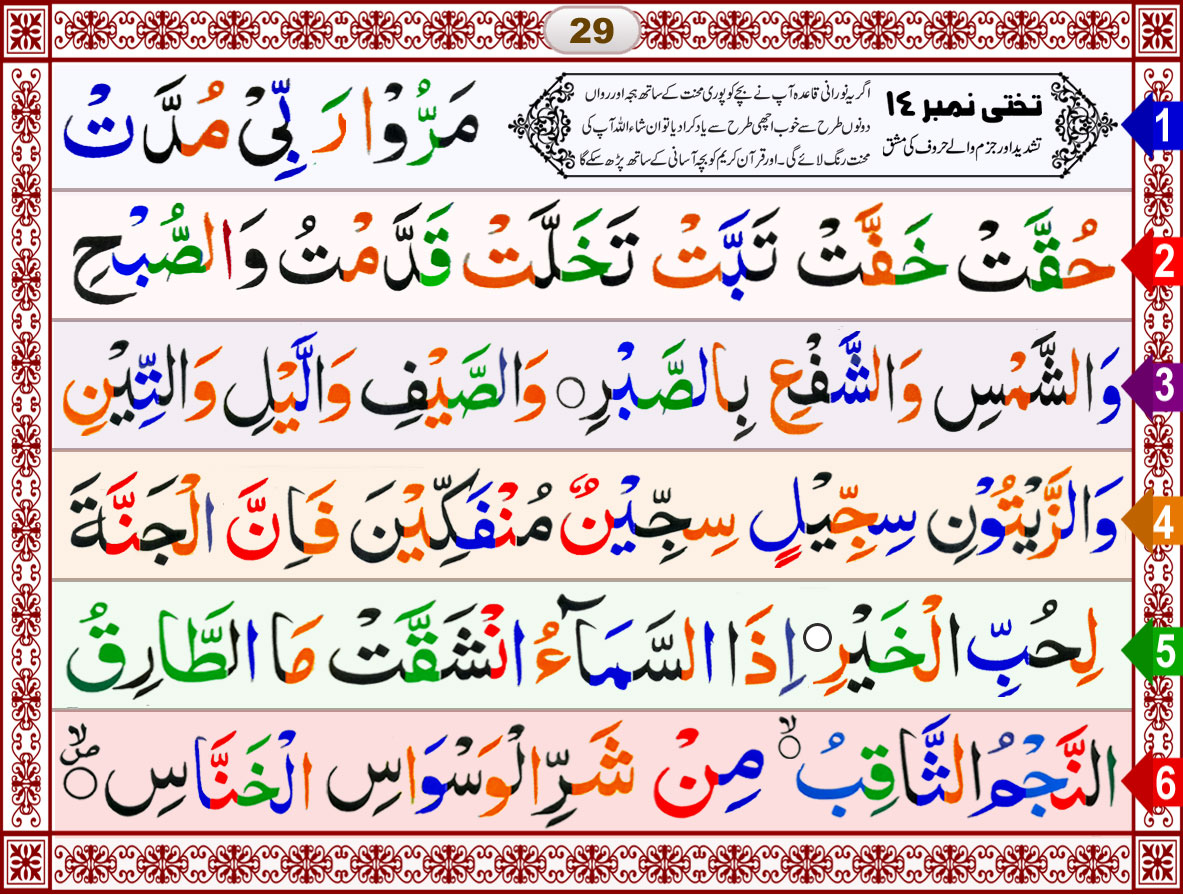 29
تختی نمبر ١٤
تشدید اور جزم والے حروف کی مشق
اگر یہ نورانی قاعدہ آپ نے بچے کو پوری محنت کے ساتھ ہجہ اور رواں
دونوں طرح سے خوب اچھی طرح سے یاد کرادیا تو ان شاء اللہ آپ کی
محنت رنگ لائے گی۔ اور قرآن کریم کو بچہ آسانی کے ساتھ پڑھ سکے گا
1 مَرُّوْا رَبِّیْ مُدَّتْ
2 حُقَّتْ خَفَّتْ تَبَّتْ تَخَلَّتْ قَدَّمْتُ وَالصُّبْحِ
3 وَالشَّمْسِ وَالشَّفْعِ بِالصَّبْرِ○ وَالصَّیْفِ وَالَّیْلِ وَالتِّیْنِ
4 وَالزَّیْتُوْنِ سِجِّیْلٍ سِجِّیْنٌ مُنْفَكِّیْنَ فَاِنَّ الْجَنَّةَ
5 لِحُبِّ الْخَیْرِ○ اِذَا السَّمَآءُ انْشَقَّتْ مَا الطَّارِقُ
6 النَّجْمُ الثَّاقِبُ○ۙ مِنْ شَرِّ الْوَسْوَاسِ الْخَنَّاسِ○